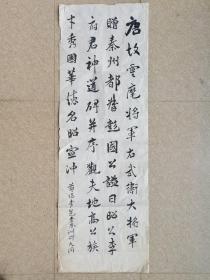 唐故雲麾將軍右武衛大將軍
贈秦州都督彭國公謚曰昭公李
府君神道碑并序觀夫地高公族
才秀國華德名昭宣沖